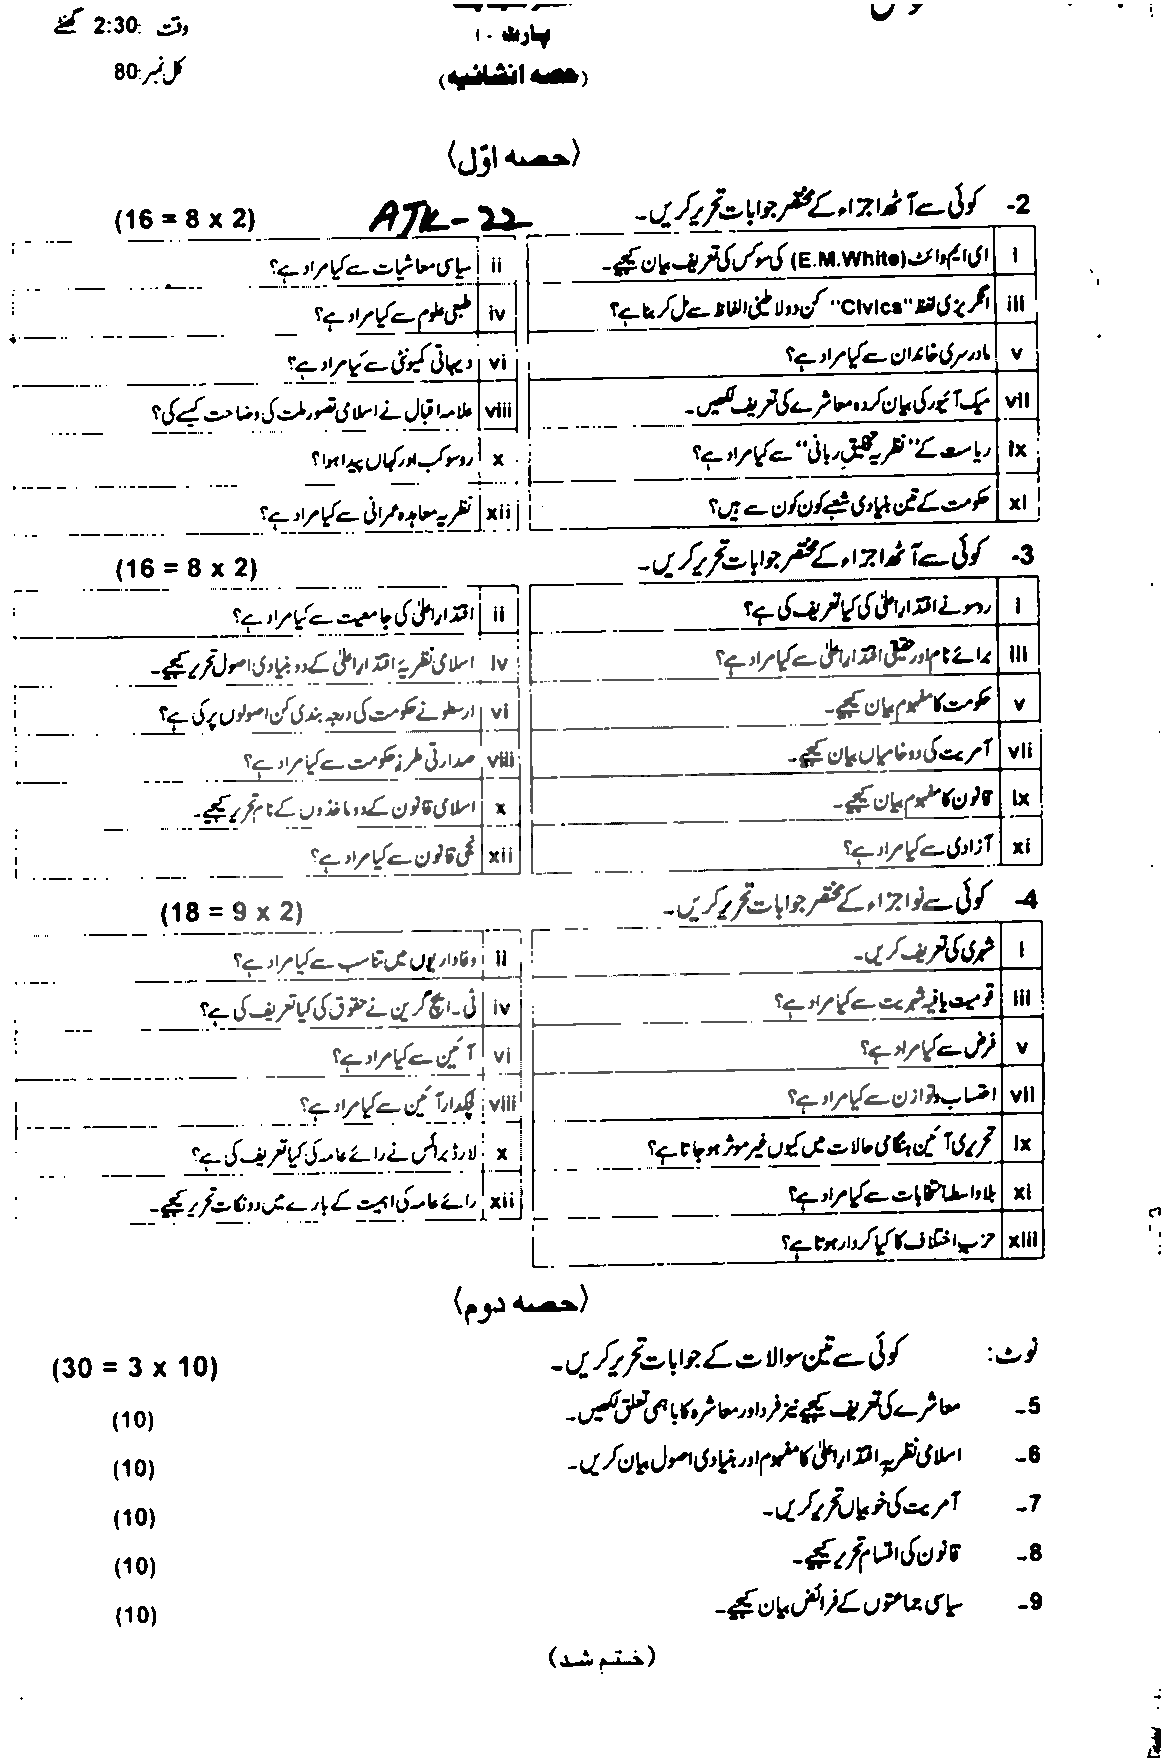 وقت :2:30 گھنٹے
پارٹ - I
کل نمبر:80
(حصہ انشائیہ)
(حصہ اوّل)
2- کوئی سے آٹھ اجزاء کے مختصر جوابات تحریر کریں۔ ATK-22 (16 = 8 x 2)
i ای ایم وائٹ (E.M.White) کی سوکس کی تعریف بیان کیجیے۔ ii سیاسی معاشیات سے کیا مراد ہے؟
iii انگریزی لفظ "Civics" کن دو لاطینی الفاظ سے مل کر بنا ہے؟ iv طبعی علوم سے کیا مراد ہے؟
v مادرسری خاندان سے کیا مراد ہے؟ vi دیہاتی کمیونٹی سے کیا مراد ہے؟
vii میک آئیور کی بیان کردہ معاشرے کی تعریف لکھیں۔ viii علامہ اقبال نے اسلامی تصور ملت کی وضاحت کیسے کی؟
ix ریاست کے "نظریہ تخلیق ربانی" سے کیا مراد ہے؟ x روسو کب اور کہاں پیدا ہوا؟
xi حکومت کے تین بنیادی شعبے کون کون سے ہیں؟ xii نظریہ معاہدہ عمرانی سے کیا مراد ہے؟
3- کوئی سے آٹھ اجزاء کے مختصر جوابات تحریر کریں۔ (16 = 8 x 2)
i روسو نے اقتدار اعلیٰ کی کیا تعریف کی ہے؟ ii اقتدار اعلیٰ کی جامعیت سے کیا مراد ہے؟
iii برائے نام اور حقیقی اقتدار اعلیٰ سے کیا مراد ہے؟ iv اسلامی نظریہ اقتدار اعلیٰ کے دو بنیادی اصول تحریر کیجیے۔
v حکومت کا مفہوم بیان کیجیے۔ vi ارسطو نے حکومت کی درجہ بندی کن اصولوں پر کی ہے؟
vii آمریت کی دو خامیاں بیان کیجیے۔ viii صدارتی طرز حکومت سے کیا مراد ہے؟
ix قانون کا مفہوم بیان کیجیے۔ x اسلامی قانون کے دو ماخذوں کے نام تحریر کیجیے۔
xi آزادی سے کیا مراد ہے؟ xii نجی قانون سے کیا مراد ہے؟
4- کوئی سے نو اجزاء کے مختصر جوابات تحریر کریں۔ (18 = 9 x 2)
i شہری کی تعریف کریں۔ ii وفاداریوں میں تناسب سے کیا مراد ہے؟
iii قومیت یافتہ شہریت سے کیا مراد ہے؟ iv ٹی۔ ایچ گرین نے حقوق کی کیا تعریف کی ہے؟
v فرض سے کیا مراد ہے؟ vi آئین سے کیا مراد ہے؟
vii احتساب و توازن سے کیا مراد ہے؟ viii لچکدار آئین سے کیا مراد ہے؟
ix تحریری آئین ہنگامی حالات میں کیوں غیر موثر ہو جاتا ہے؟ x لارڈ برائس نے رائے عامہ کی کیا تعریف کی ہے؟
xi بلاواسطہ انتخابات سے کیا مراد ہے؟ xii رائے عامہ کی اہمیت کے بارے میں دو نکات تحریر کیجیے۔
xiii حزب اختلاف کا کیا کردار ہوتا ہے؟
(حصہ دوم)
نوٹ: کوئی سے تین سوالات کے جوابات تحریر کریں۔ (30 = 3 x 10)
5- معاشرے کی تعریف کیجیے نیز فرد اور معاشرہ کا باہمی تعلق لکھیں۔ (10)
6- اسلامی نظریہ اقتدار اعلیٰ کا مفہوم اور بنیادی اصول بیان کریں۔ (10)
7- آمریت کی خوبیاں تحریر کریں۔ (10)
8- قانون کی اقسام تحریر کیجیے۔ (10)
9- سیاسی جماعتوں کے فرائض بیان کیجیے۔ (10)
(ختم شد)